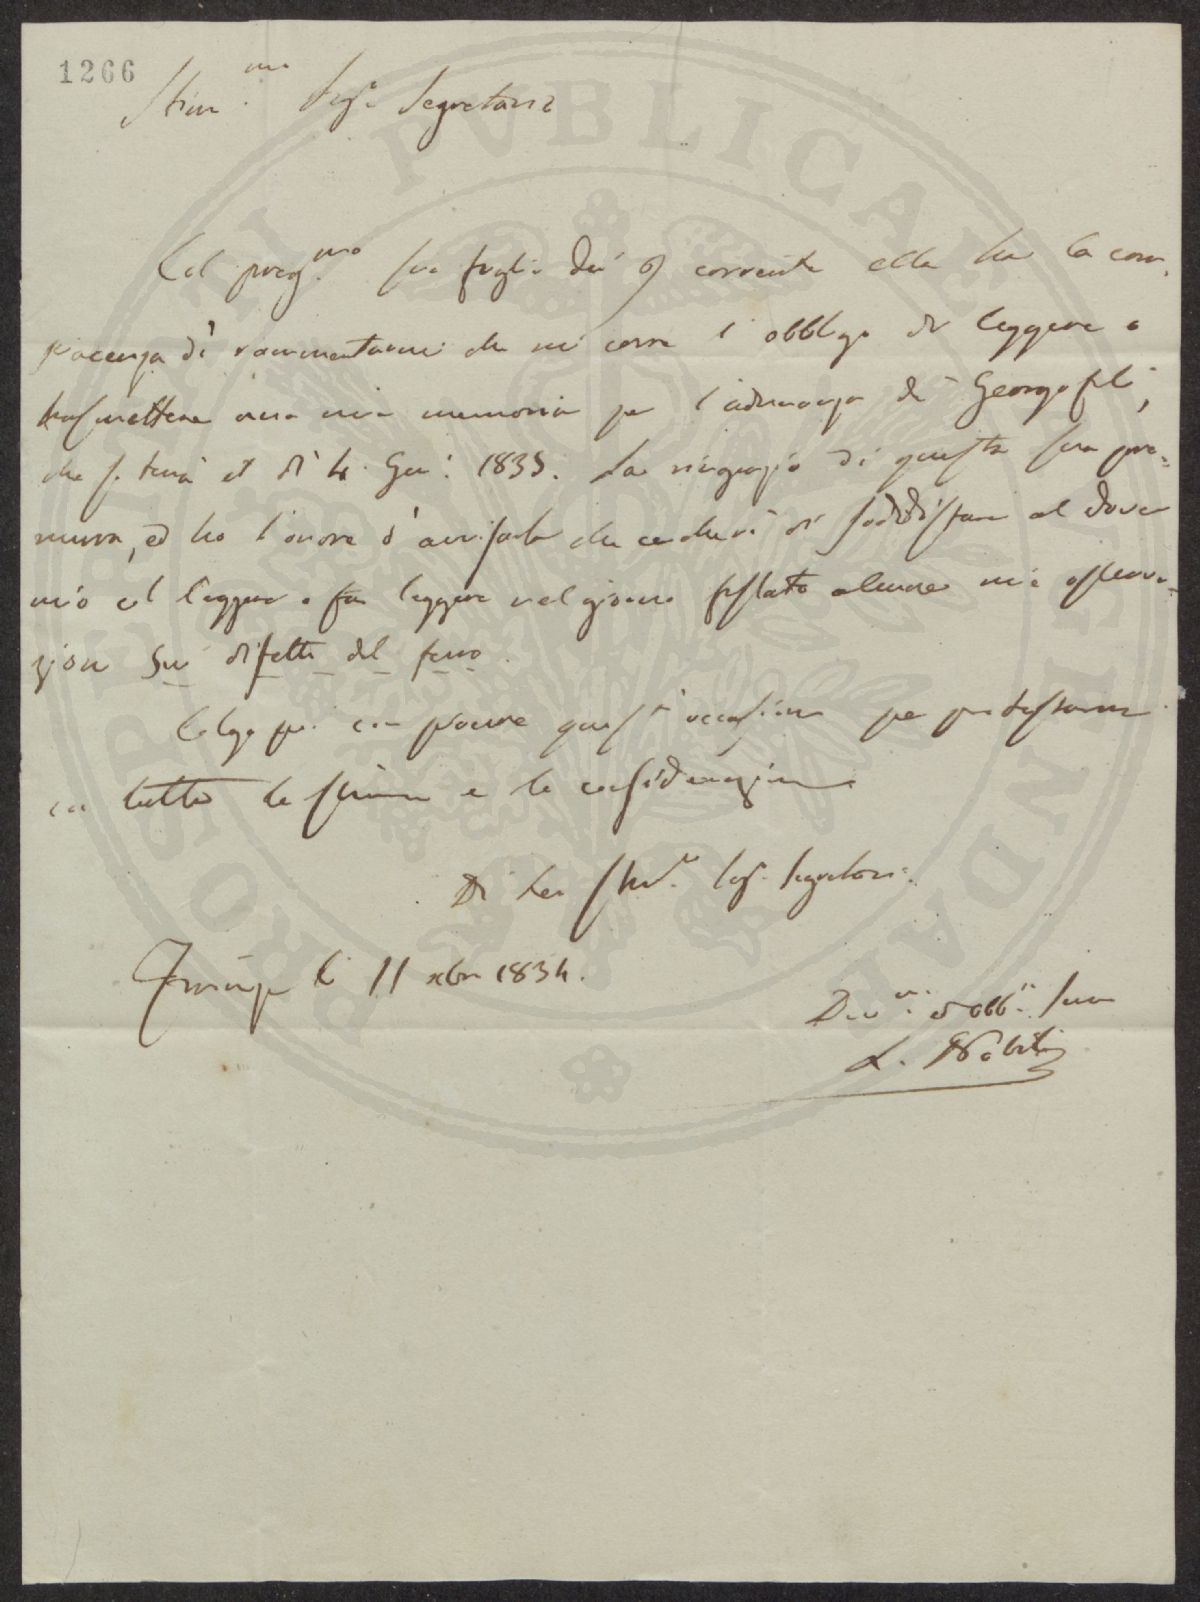 1266
Stim.mo Sig.r Segretario
Col preg.mo suo foglio dei 9 corrente ella ha la com-
piacenza di rammentarmi che mi corre l'obbligo di leggere o
trasmettere una mia memoria per l'adunanza de' Georgofili,
che si terrà il dì 4 Gen: 1835. La ringrazio di questa sua pre=
mura, ed ho l'onore d'avvisarla che cercherò di soddisfare al dover
mio col leggere o far leggere nel giorno fissato alcune mie osserva-
zioni sui difetti del ferro.
Colgo poi con piacere quest'occasione per protestarmi
con tutta la stima e la considerazione
Di Lei Stim.o Sig.r Segretario.
Firenze li 11 xbre 1834.
Dev.mo ed obb.mo Servo
L. Nobili
PROSPERITATI PVBLICAE AVGENDAE